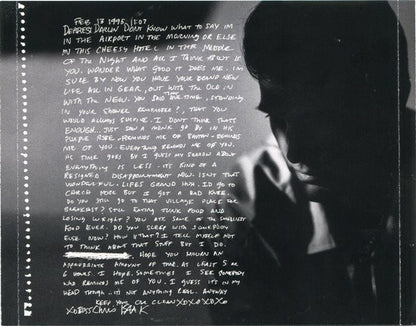 FEB 13 1995, 1:07
DEAREST DARLIN DONT KNOW WHAT TO SAY IM
IN THE AIRPORT IN THE MORNING OR ELSE
IN THIS CHEESY HOTEL IN THE MIDDLE
OF THE NIGHT AND ALL I THINK ABOUT IS
YOU. WONDER WHAT GOOD IT DOES ME. IM
SURE BY NOW YOU HAVE YOUR BRAND NEW
LIFE ALL IN GEAR, OUT WITH THE OLD IN
WITH THE NEW. YOU SAID ONE TIME, STANDING
IN YOUR SHOWER REMEMBER?, THAT YOU
WOULD ALWAYS SURVIVE. I DON'T THINK THATS
ENOUGH. JUST SAW A MONK GO BY IN HIS
PURPLE ROBE. REMINDS ME OF BHUTAN - REMINDS
ME OF YOU. EVERYTHING REMINDS ME OF YOU.
AS TIME GOES BY I GUESS MY SORROW ABOUT
EVERYTHING IS LESS - ITS KIND OF A
RESIGNED DISAPPOINTMENT NOW. ISNT THAT
WONDERFUL. LIFES GRAND HUH. ID GO TO
CHURCH MORE BUT I GOT A BAD KNEE.
DO YOU STILL GO TO THAT VILLAGE PLACE FOR
BREAKFAST? STILL EATING THAT FOOD AND
LOSING WEIGHT? YOU ATE SOME OF THE SMELLIEST
FOOD EVER. DO YOU SLEEP WITH SOMEBODY
ELSE NOW? HOW IS THAT? I TELL MYSELF NOT
TO THINK ABOUT THAT STUFF BUT I DO.
HOPE YOU MOURN AN
APPROPRIATE AMOUNT OF TIME. AT LEAST 5 OR
6 HOURS. I HOPE. SOMETIMES I SEE SOMEBODY
WHO REMINDS ME OF YOU. I GUESS ITS IN MY
HEAD THOUGH. ITS NOT ANYTHING REAL. ANYWAY
KEEP YOUR CAR CLEAN XOXOXOXO
CHRIS ISAAK